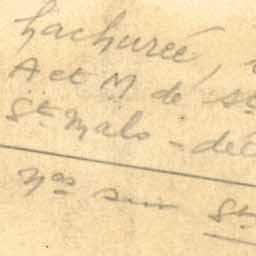 hachurée,
A et M de St
St Malo - déc
Nos sur St